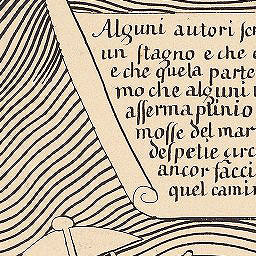 Alguni autori ſcr
un ſtagno e che e
e che quela parte
mo che alguni
aſſerma plinio
moſſe del mar
deſpetie circ
ancor facci
quel camin